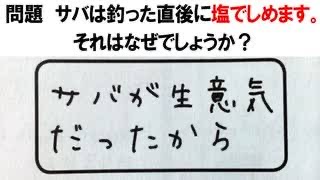 問題　サバは釣った直後に塩でしめます。
それはなぜでしょうか？
サバが生意気
だったから